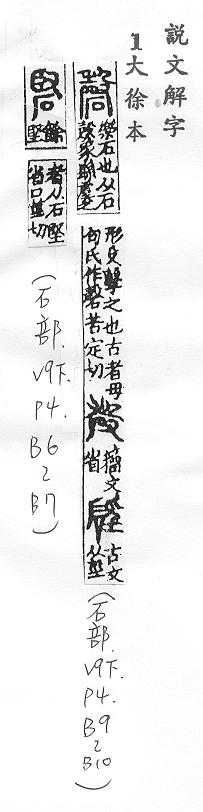 説文解字
1大徐本
磬
樂石也从石
殸象縣虡之
形殳擊之也古者母
句氏作磬苦定切
殸
籒文
省
硜
古文
从巠
(石部. V9下. P4. B9~B10)
硻
餘
堅
者从石堅
省口莖切
(石部. V9下. P4. B6~B7)